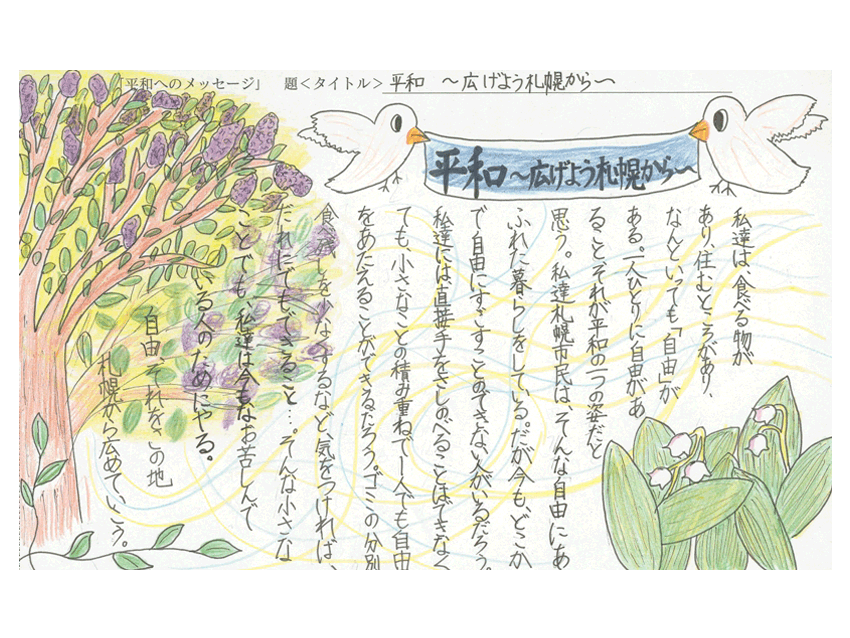 「平和へのメッセージ」　題＜タイトル＞ 平和　～広げよう札幌から～
平和～広げよう札幌から～
私達は、食べる物が
あり、住むところがあり、
なんといっても「自由」が
ある。一人ひとりに自由があ
ること、それが平和の一つの姿だと
思う。私達札幌市民は、そんな自由にあ
ふれた暮らしをしている。だが今も、どこか
で自由にすごすことのできない人がいるだろう。
私達には直接手をさしのべることはできなく
ても、小さなことの積み重ねで一人でも自由
をあたえることができるだろう。ゴミの分別
食べ残しを少なくするなど、気をつければ、
だれにでもできること…。そんな小さな
ことでも、私達は今もなお苦しんで
いる人のためにやる。
自由、それをこの地
札幌から広めていこう。